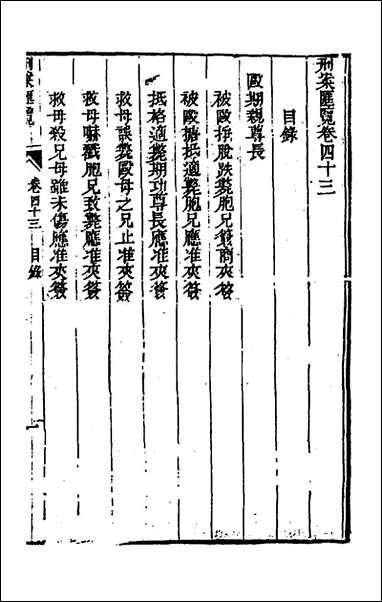 刑案匯覽卷四十三
目錄
毆期親尊長
被毆掙脫跌斃胞兄簽商夾簽
被毆搪抵適斃胞兄應准夾簽
抵格適斃期功尊長應准夾簽
救母誤斃毆母之兄止准夾簽
救母嚇戳胞兄致斃應准夾簽
救母殺兄母雖未傷應准夾簽
刑案匯覽
卷四十三 目錄
一